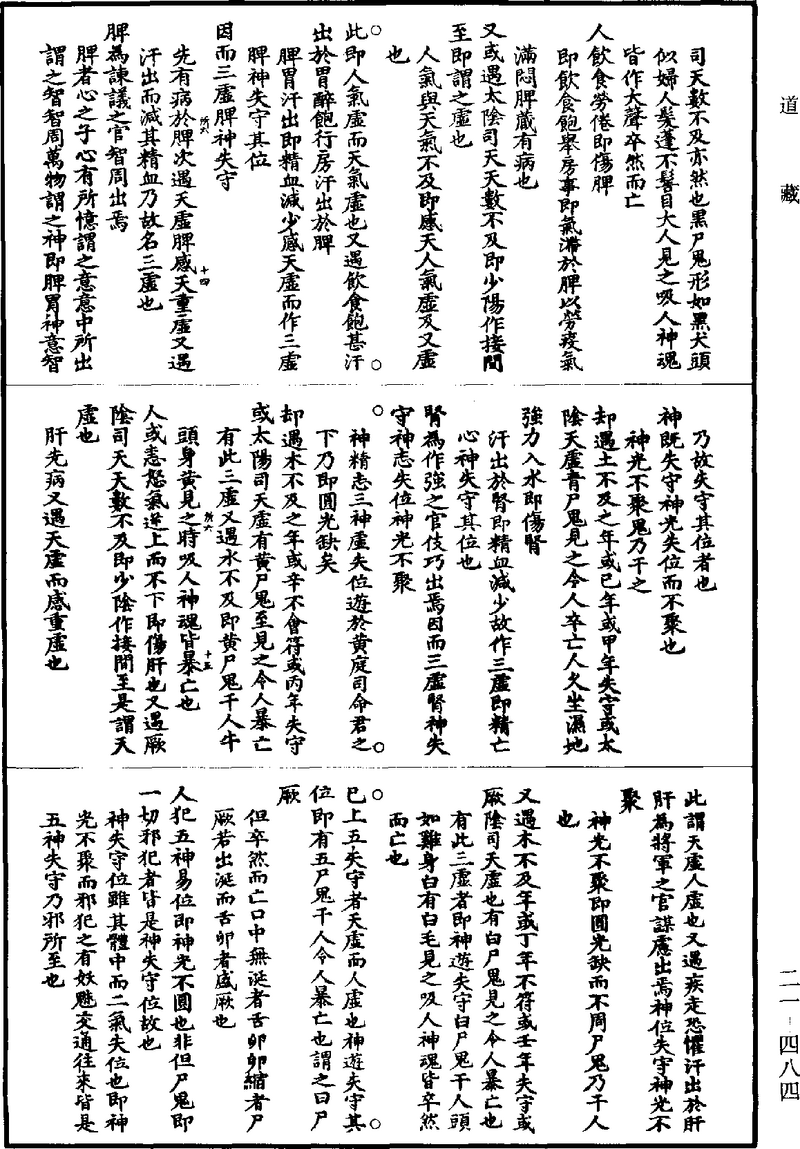 道藏
司天數不及亦然也黑尸鬼形如黑犬頭
似婦人髮蓬不髻目大人見之吸人神魂
皆作大聲卒然而亡
人飲食勞倦即傷脾
即飲食飽舉房事即氣滯於脾以勞疫氣
滿悶脾藏有病也
又或遇太陰司天天數不及即少陽作接間
至即謂之虛也
人氣與天氣不及即感天人氣虛及又虛
也
此即人氣虛而天氣虛也又遇飲食飽甚汗
出於胃醉飽行房汗出於脾
脾胃汗出即精血減少感天虛而作三虛
脾神失守其位
因而三虛脾神失守
所六
十四
先有病於脾次遇天虛脾感天重虛又遇
汗出而減其精血乃故名三虛也
脾為諫議之官智周出焉
脾者心之子心有所憶謂之意意中所出
謂之智智周萬物謂之神即脾胃神意智
乃故失守其位者也
神既失守神光失位而不聚也
神光不聚鬼乃干之
却遇土不及之年或己年或甲年失守或太
陰天虛青尸鬼見之令人卒亡人久坐濕地
強力入水即傷腎
汗出於腎即精血減少故作三虛即精亡
心神失守其位也
腎為作強之官伎巧出焉因而三虛腎神失
守神志失位神光不聚
神精志三神虛失位遊於黃庭司命君之
下乃即圓光缺矣
却遇水不及之年或辛不會符或丙年失守
或太陽司天虛有黃尸鬼至見之令人暴亡
有此三虛又遇水不及即黃尸鬼干人牛
所六
十五
頭身黃見之時吸人神魂皆暴亡也
人或恚怒氣逆上而不下即傷肝也又遇厥
陰司天天數不及即少陰作接間至是謂天
虛也
肝先病又遇天虛而感重虛也
此謂天虛人虛也又遇疾走恐懼汗出於肝
肝為將軍之官謀慮出焉神位失守神光不
聚
神光不聚即圓光缺而不周尸鬼乃干人
也
又遇木不及年或丁年不符或壬年失守或
厥陰司天虛也有白尸鬼見之令人暴亡也
有此三虛者即神遊失守白尸鬼干人頭
如雞身白有白毛見之吸人神魂皆卒然
而亡也
已上五失守者天虛而人虛也神遊失守其
位即有五尸鬼干人令人暴亡也謂之曰尸
厥
但卒然而亡口中無涎者舌卵卵縮者尸
厥若出涎而舌卵者感厥也
人犯五神易位即神光不圓也非但尸鬼即
一切邪犯者皆是神失守位故也
神失守位雖其體中而二氣失位也即神
光不聚而邪犯之有妖魅交通往來皆是
五神失守乃邪所至也
二一-四八四